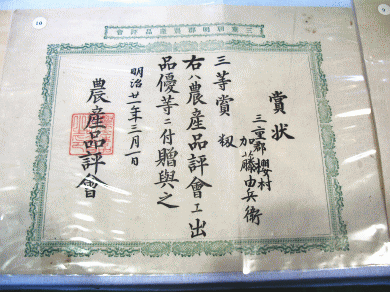 賞状
三重郡櫻村
加藤由兵衛
三等賞
右ハ農産品評會エ出
品優等ニ付贈與之
明治廿一年三月一日
農産品評會
10